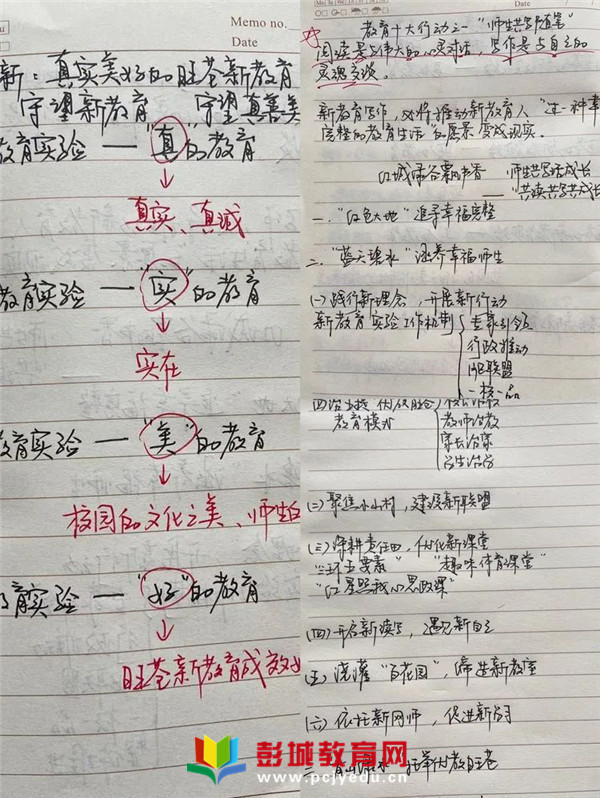 Memo no.
Date
新：真实美好的旺苍新教育
守望新教育 守望真善美
教育实验——“真”的教育
真实、真诚
教育实验——“实”的教育
实在
教育实验——“美”的教育
校园的文化之美、师生的
教育实验——“好”的教育
旺苍新教育成效
Date
教育十大行动之一“师生共写随笔”
阅读是与伟大的心灵对话，写作是与自己的
灵魂交谈。
新教育写作，必将推动新教育人“过一种幸
完整的教育生活”的愿景变成现实。
红城绿谷 书香 师生共写话成长
共读共写共成长
一、“红色大地”追寻幸福完整
二、“蓝天碧水”涵养幸福师生
(一)践行新理念，开展新行动
新教育实验工作机制
专家引领
行政推动
联盟
一校一品
教育模式
教师治教
家长治家
学生治学
(二)聚焦小山村，建设新联盟
(三)深耕责任田，优化新课堂
“趣味体育课堂”
“红星照我心思政课”
(四)开启新读写，遇见新自己
(五)浇灌“百花园”，缔造新教室
(六)依托新网师，促进新
彭城教育网
www.pcjyedu.cn